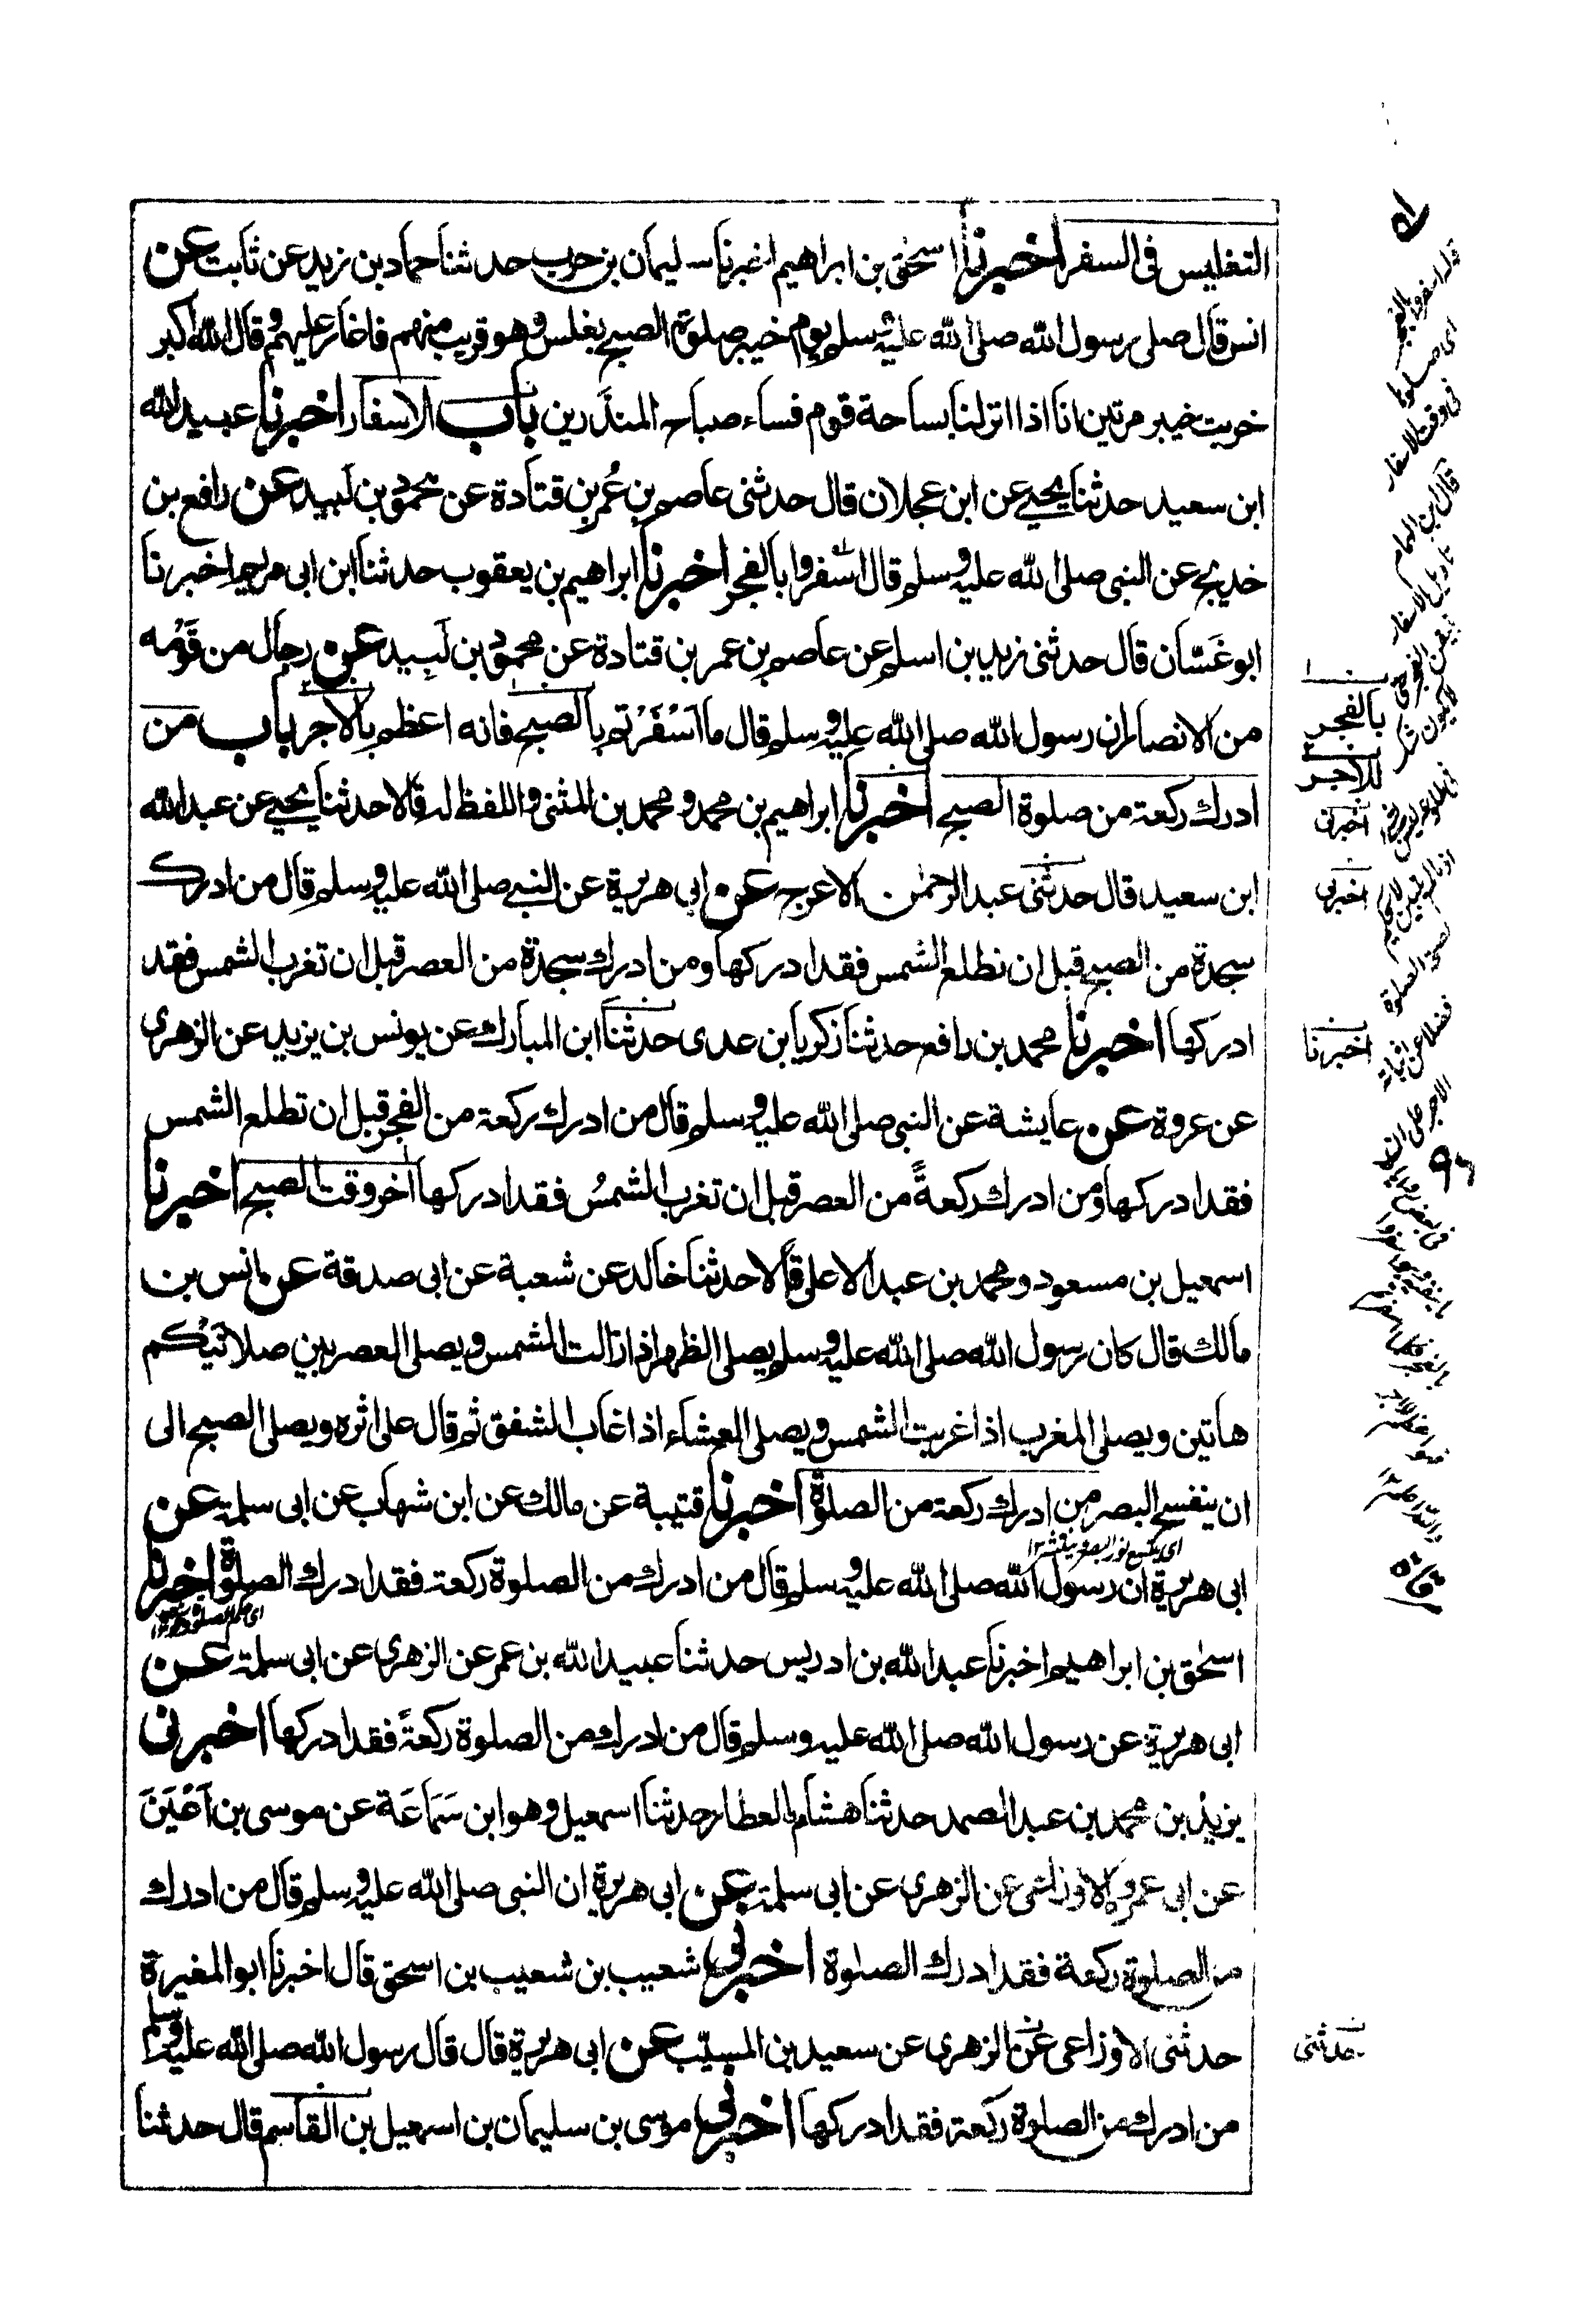 التغليس فى السفر اخبرنا اسحٰق بن ابراهيم اخبرنا سليمان بن حرب حدثنا حماد بن زيد عن ثابت عن
انس قال صلى رسول الله صلى الله عليه وسلم يوم خيبر صلوة الصبح بغلس وهو قريب منهم فاغار عليهم وقال الله اكبر
خربت خيبر مرتين انا اذا انزلنا بساحة قوم فساء صباح المنذَرين باب الاسفار اخبرنا عبيد الله
ابن سعيد حدثنا يحيى عن ابن عجلان قال حدثنى عاصم بن عُمر بن قتادة عن محمود بن لبيد عن رافع بن
خديج عن النبى صلى الله عليه وسلم قال اسفروا بالفجر اخبرنا ابراهيم بن يعقوب حدثنا ابن ابى مريم اخبرنا
ابو غَسّان قال حدثنى زيد بن اسلم عن عاصم بن عمر بن قتادة عن محمود بن لَبيد عن رجال من قَوْمه
من الانصار ان رسول الله صلى الله عليه وسلم قال ما اَسْفَرْتم بالصبح فانه اعظم بالاجر باب من
ادرك ركعة من صلوة الصبح اخبرنا ابراهيم بن محمد ومحمد بن المثنى واللفظ له قالا حدثنا يحيى عن عبد الله
ابن سعيد قال حدثنى عبد الرحمٰن الاعرج عن ابى هريرة عن النبى صلى الله عليه وسلم قال من ادرك
سجدة من الصبح قبل ان تطلع الشمس فقد ادركها ومن ادرك سجدة من العصر قبل ان تغرب الشمس فقد
ادركها اخبرنا محمد بن رافع حدثنا زكريا بن عدى حدثنا ابن المبارك عن يونس بن يزيد عن الزهرى
عن عروة عن عايشة عن النبى صلى الله عليه وسلم قال من ادرك ركعة من الفجر قبل ان تطلع الشمس
فقد ادركها ومن ادرك ركعةً من العصر قبل ان تغرب الشمسُ فقد ادركها اٰخر وقت الصبح اخبرنا
اسمعيل بن مسعود ومحمد بن عبد الاعلى قالا حدثنا خالد عن شعبة عن ابى صدقة عن انس بن
مالك قال كان رسول الله صلى الله عليه وسلم يصلى الظهر اذا زالت الشمس ويصلى العصر بين صلاتَيْكم
هاتين ويصلى المغرب اذا غربت الشمس ويصلى العشاء اذا غاب الشفق ثم قال على اثره ويصلى الصبح الى
ان ينفسح البصر من ادرك ركعة من الصلوة اخبرنا قتيبة عن مالك عن ابن شهاب عن ابى سلمة عن
ابى هريرة ان رسول الله صلى الله عليه وسلم قال من ادرك من الصلوة ركعة فقد ادرك الصلوة اخبرنا
اسحٰق بن ابراهيم اخبرنا عبد الله بن ادريس حدثنا عبيد الله بن عمر عن الزهرى عن ابى سلمة عن
ابى هريرة عن رسول الله صلى الله عليه وسلم قال من ادرك من الصلوة ركعةً فقد ادركها اخبرنى
يزيد بن محمد بن عبد الصمد حدثنا هشام العطار حدثنا اسمعيل وهو ابن سَمَاعَة عن موسى بن اَعْيَنَ
عن ابى عمرو الاوزاعى عن الزهرى عن ابى سلمة عن ابى هريرة ان النبى صلى الله عليه وسلم قال من ادرك
من الصلوة ركعة فقد ادرك الصلوة اخبرنى شعيب بن شعيب بن اسحق قال اخبرنا ابو المغيرة
حدثنى الاوزاعى عن الزهرى عن سعيد بن المسيّب عن ابى هريرة قال قال رسول الله صلى الله عليه وسلم
من ادرك من الصلوة ركعة فقد ادركها اخبرنى موسى بن سليمان بن اسمعيل بن القاسم قال حدثنا
قوله اسفروا بالفجر
اى صلوا
فى وقت الاسفار
قال ابن الهمام
تاويل الاسفار
لا يكون شك
فضلا عن اثبات
بالفجر
للاجر
اخبرنى
اخبرنى
اخبرنا
حدثنى